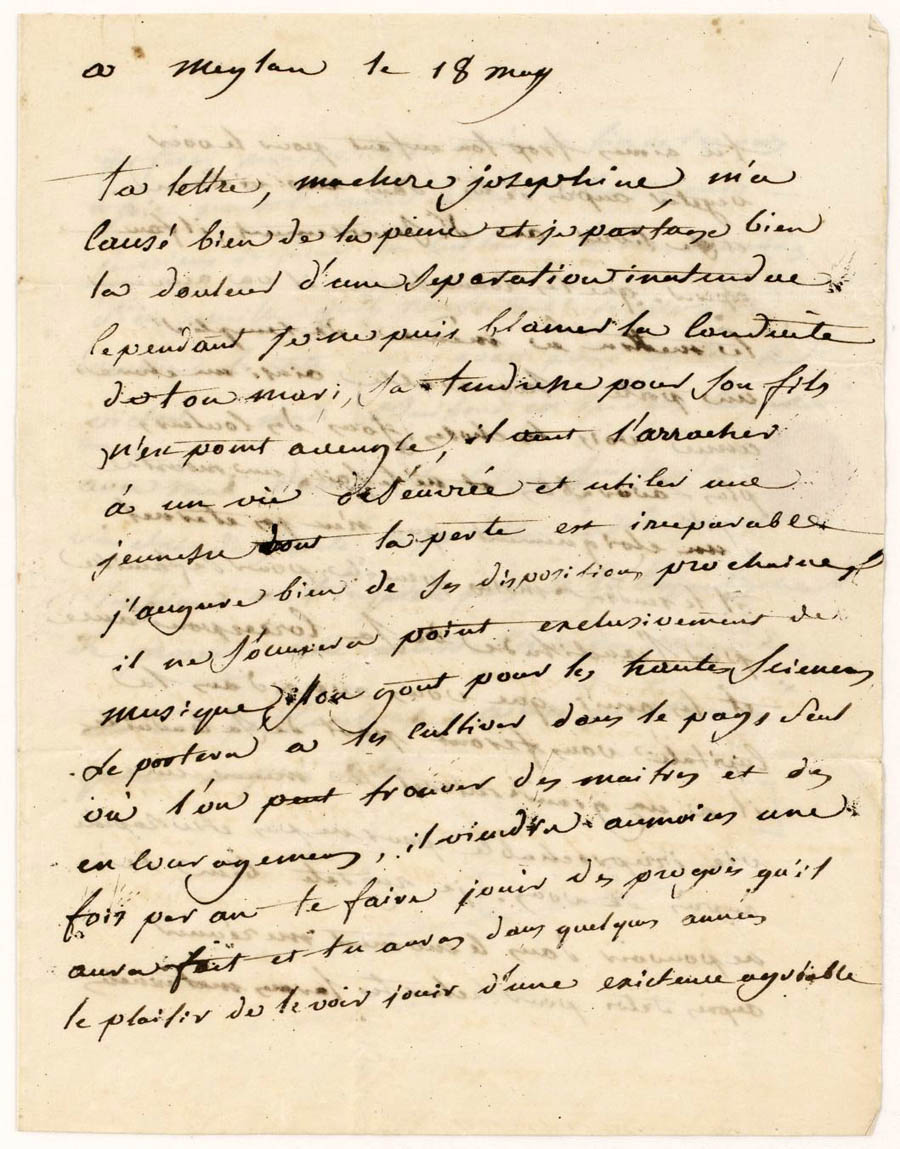 a Meylan le 18 may
ta lettre, machere josephine m'a
causé bien de la peine et je partage bien
la douleur d'une separation inatendue
cependant je ne puis blamer la conduite
de ton mari, sa tendresse pour son fils
n'est point aveugle, il veut l'arracher
á un vie déseuvrée et utiliser une
jeunesse dont la perte est irreparable
j'augure bien de ses dispositions prochaines
il ne s'ocupera point exclusivement de
musique, son gout pour les hautes sciences
Le portera a les cultiver dans le pays seul
où l'on peut trouver des maitres et des
encouragemens, il viendra aumoins une
fois par an te faire jouir des progrès qu'il
aura fait et tu auras dans quelques années
le plaisir de le voir jouir d'une existence agréable